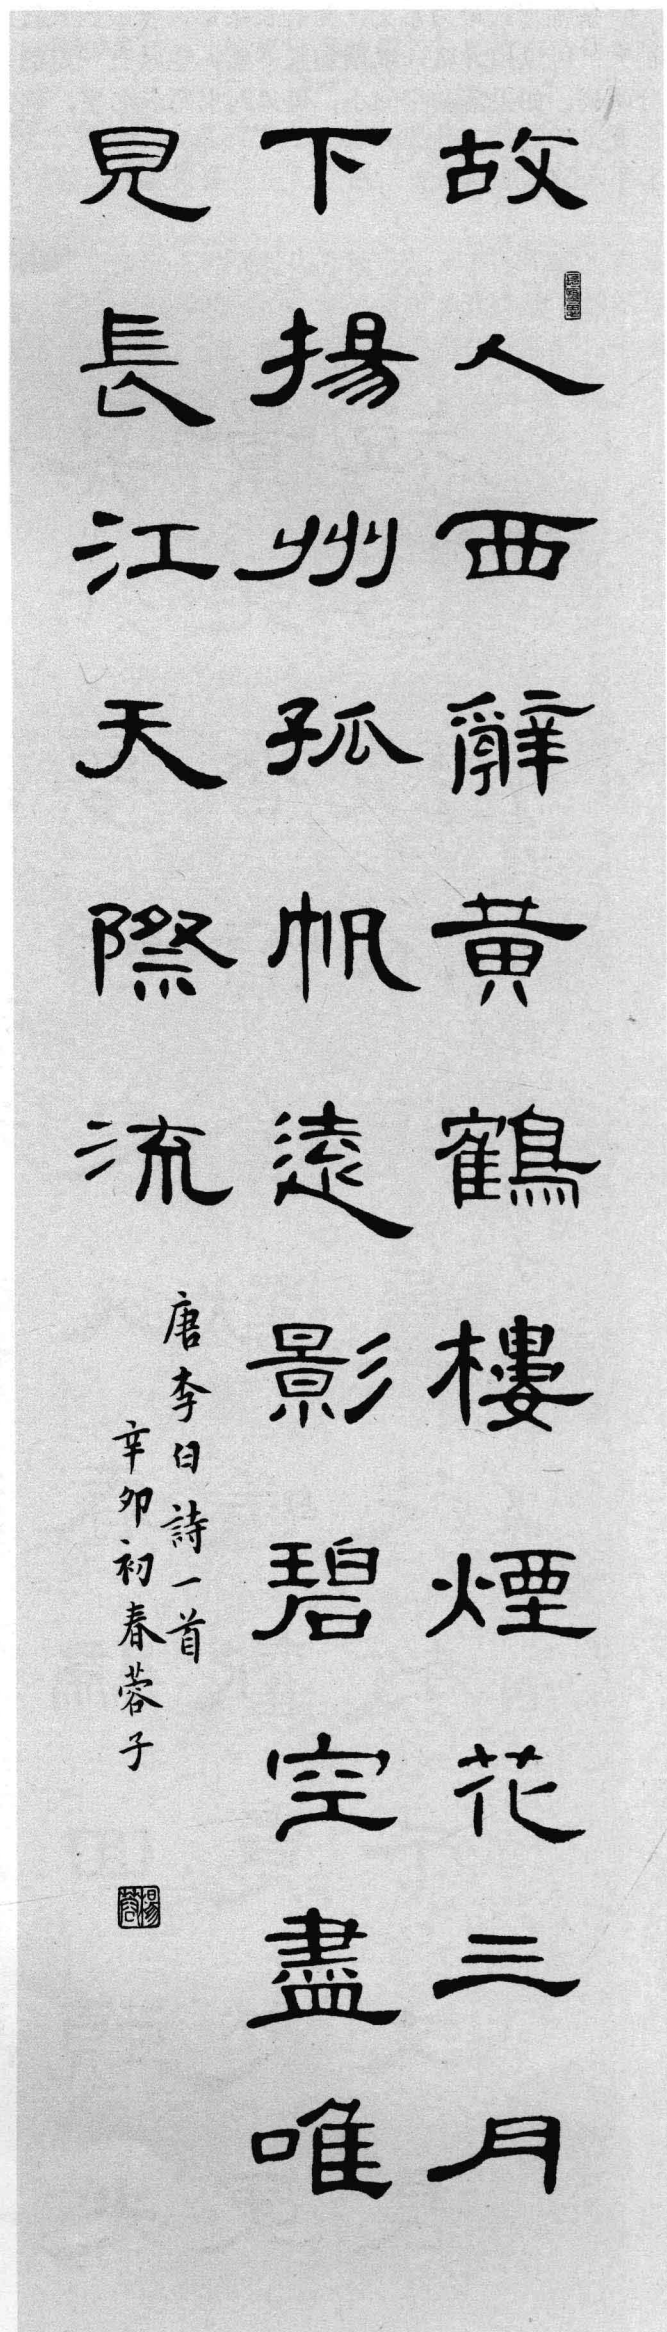 故人西辭黃鶴樓煙花三月
下揚州孤帆遠影碧空盡唯
見長江天際流
唐李白詩一首
辛卯初春蓉子
楊蓉